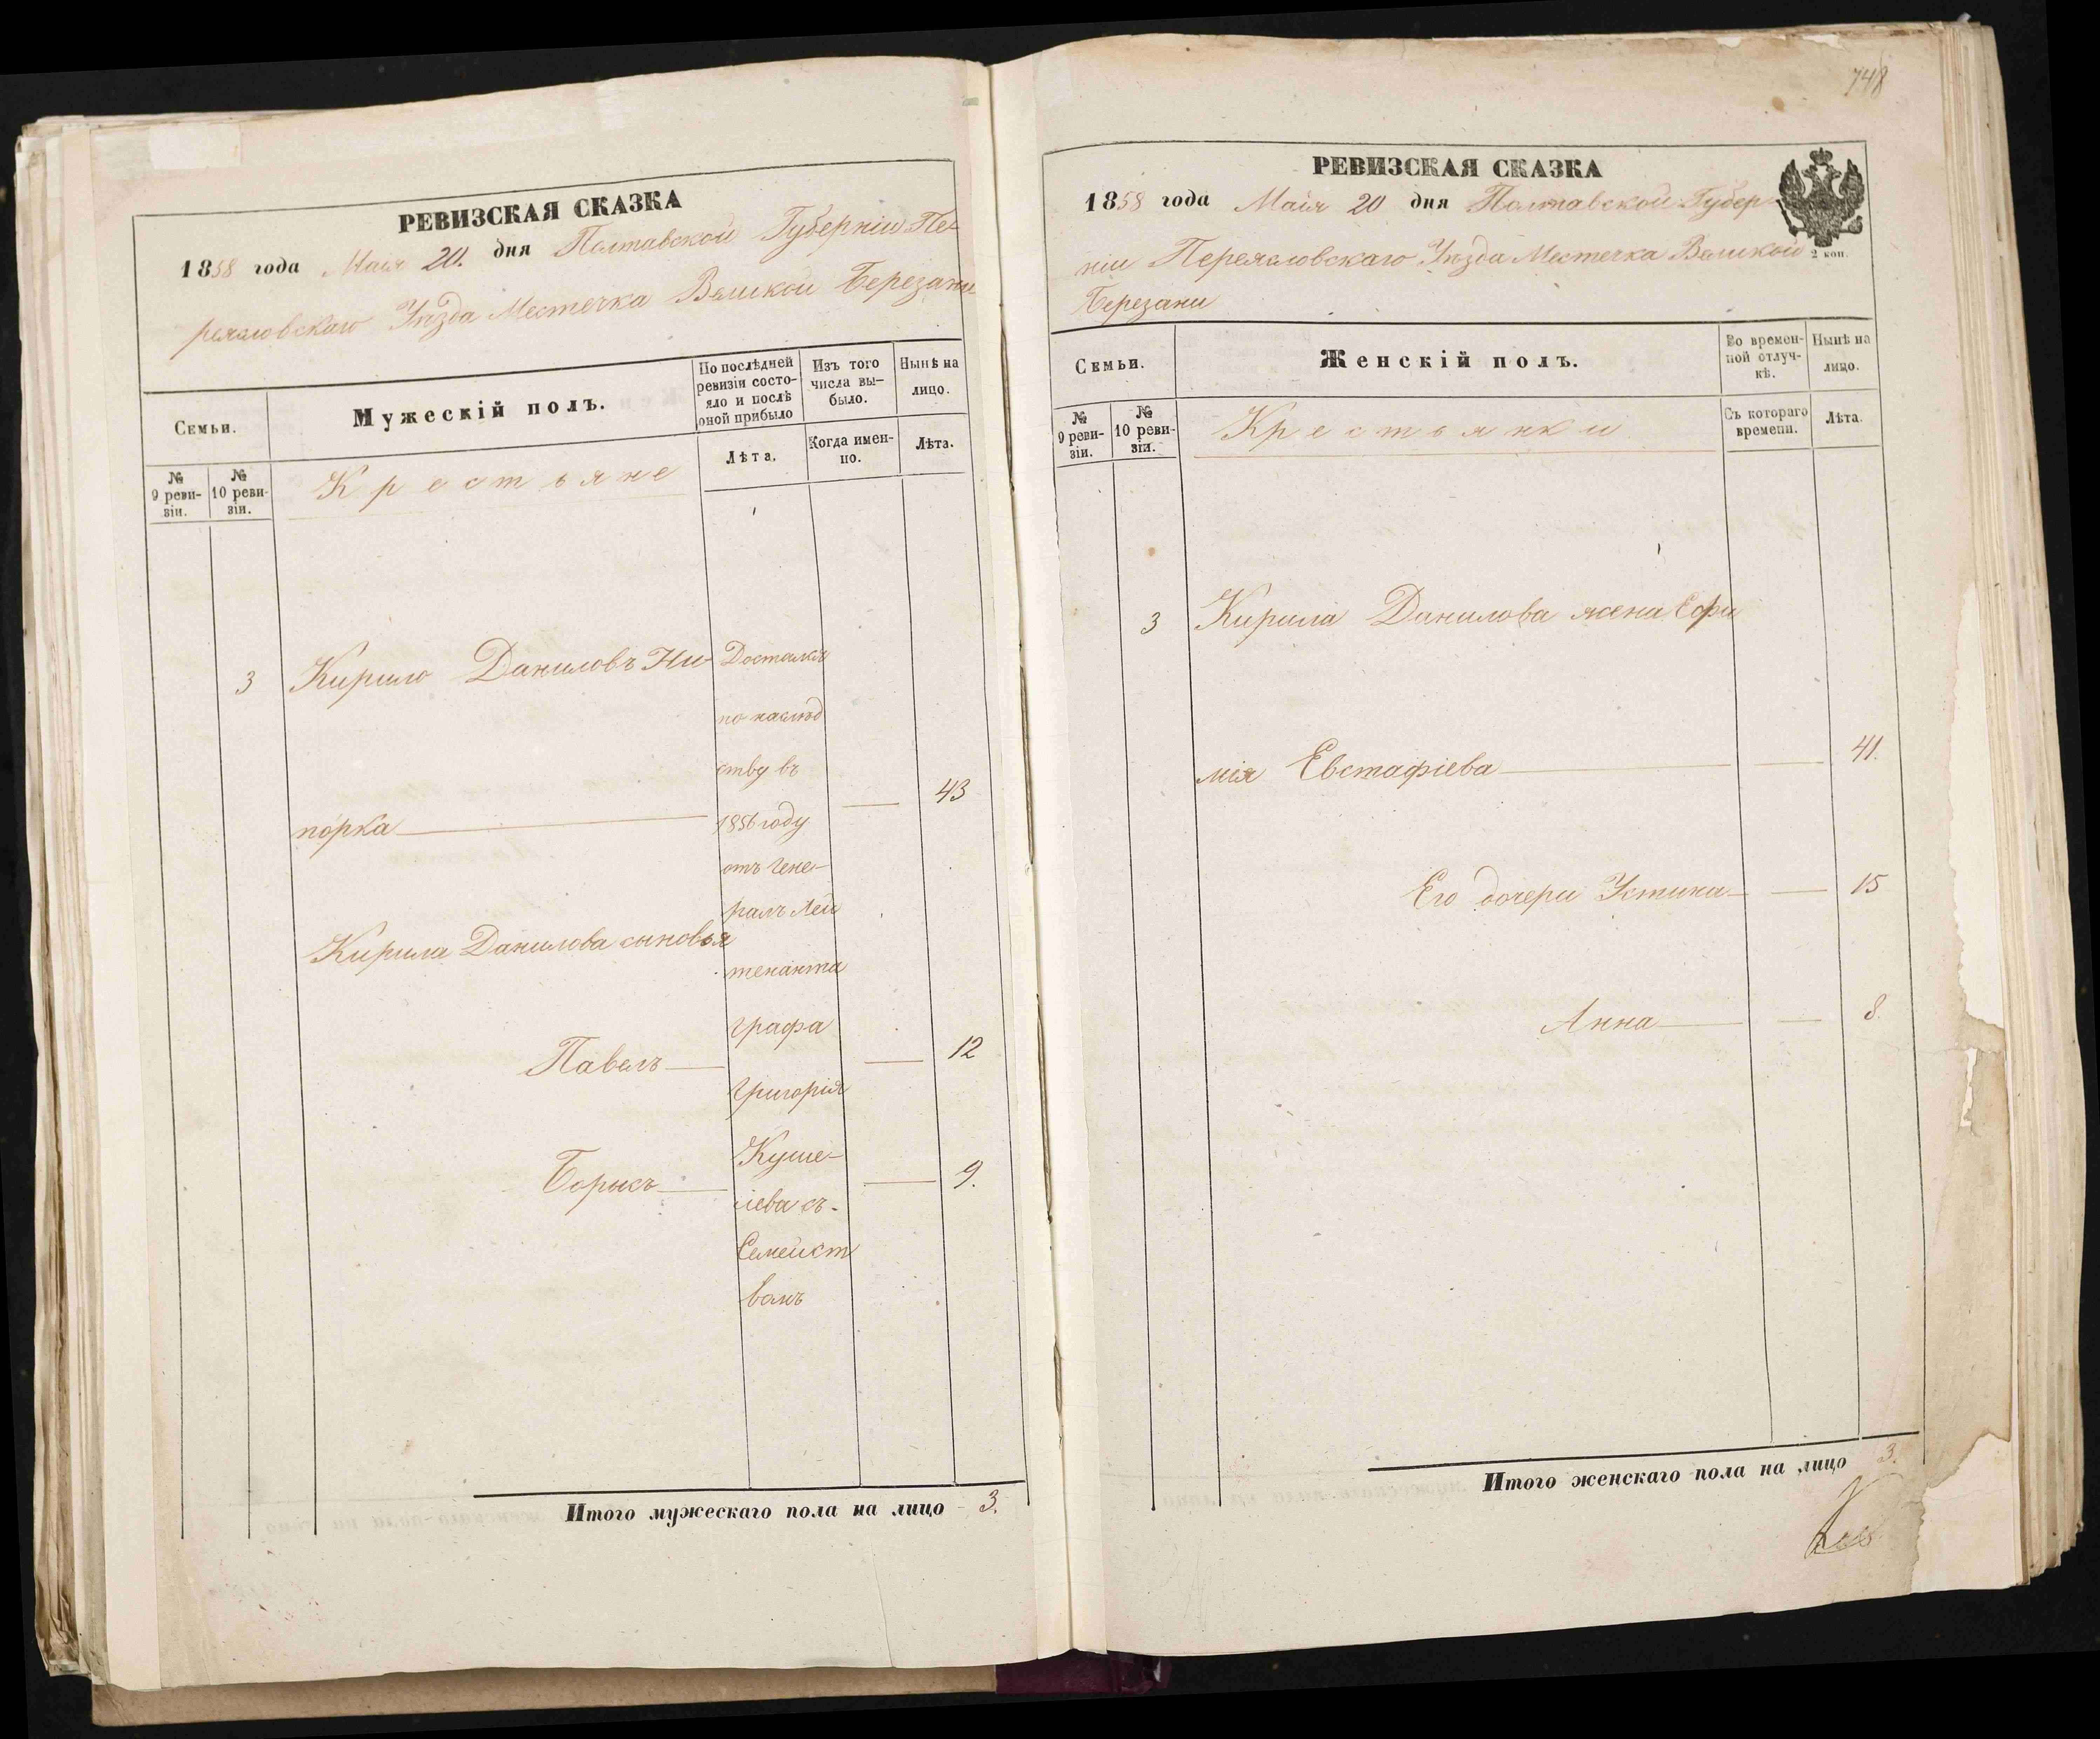 РЕВИЗСКАЯ СКАЗКА
1858 года Маія 20. дня Полтавской Губерніи Пе-
реяславскаго Уѣзда Местечка Великой Березани
Семьи.
Мужескій полъ.
По послѣдней
ревизіи состо-
яло и послѣ
оной прибыло
Изъ того
числа вы-
было.
Нынѣ на
лицо.
№
9 реви-
зіи.
№
10 реви-
зіи.
Крестьяне
Лѣта.
Когда имен-
но.
Лѣта.
3 Кирило Даниловъ Ни-
порка 43
Кирила Данилова сыновья
Павелъ 12
Борысъ 9.
Досталъ
по наслѣд
ству въ
1856 году
отъ Гене-
ралъ Лей
тенанта
Графа
Григорія
Куше-
лева съ-
Семейст
вомъ
Итого мужескаго пола на лицо 3.
748
РЕВИЗСКАЯ СКАЗКА
1858 года Маія 20 дня Полтавской Губер-
ніи Переяславскаго Уѣзда Местечка Великой
2 коп.
Березани
Семьи.
Женскій полъ.
Во времен-
ной отлуч-
кѣ.
Нынѣ на
лицо.
№
9 реви-
зіи.
№
10 реви-
зіи.
Крестьянки
Съ котораго
времени.
Лѣта.
3 Кирила Данилова жена Ефи
мія Евстафіева 41.
Его дочери Устина 15
Анна 8.
Итого женскаго пола на лицо 3.